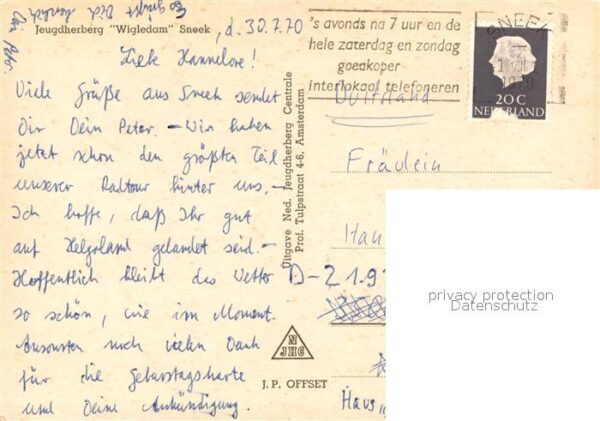 Es grüßt Dich herzlich
Dein Peter
Jeugdherberg "Wigledam" Sneek , d. 30.7.70
Liebe Hannelore!
Viele Grüße aus Sneek sendet
Dir Dein Peter. – Wir haben
jetzt schon den größten Teil
unserer Radtour hinter uns. –
Ich hoffe, daß Ihr gut
auf Helgoland gelandet seid. –
Hoffentlich bleibt das Wetter
so schön, wie im Moment.
Ansonsten noch vielen Dank
für die Geburtstagskarte
und Deine Ankündigung.
Uitgave Ned. Jeugdherberg Centrale
Prof. Tulpstraat 4-6, Amsterdam
N
JHC
J.P. OFFSET
's avonds na 7 uur en de
hele zaterdag en zondag
goedkoper
interlokaal telefoneren
SNEEK
1970
20 C
NEDERLAND
Fräulein
Han
D-21.9
Haus
privacy protection
Datenschutz